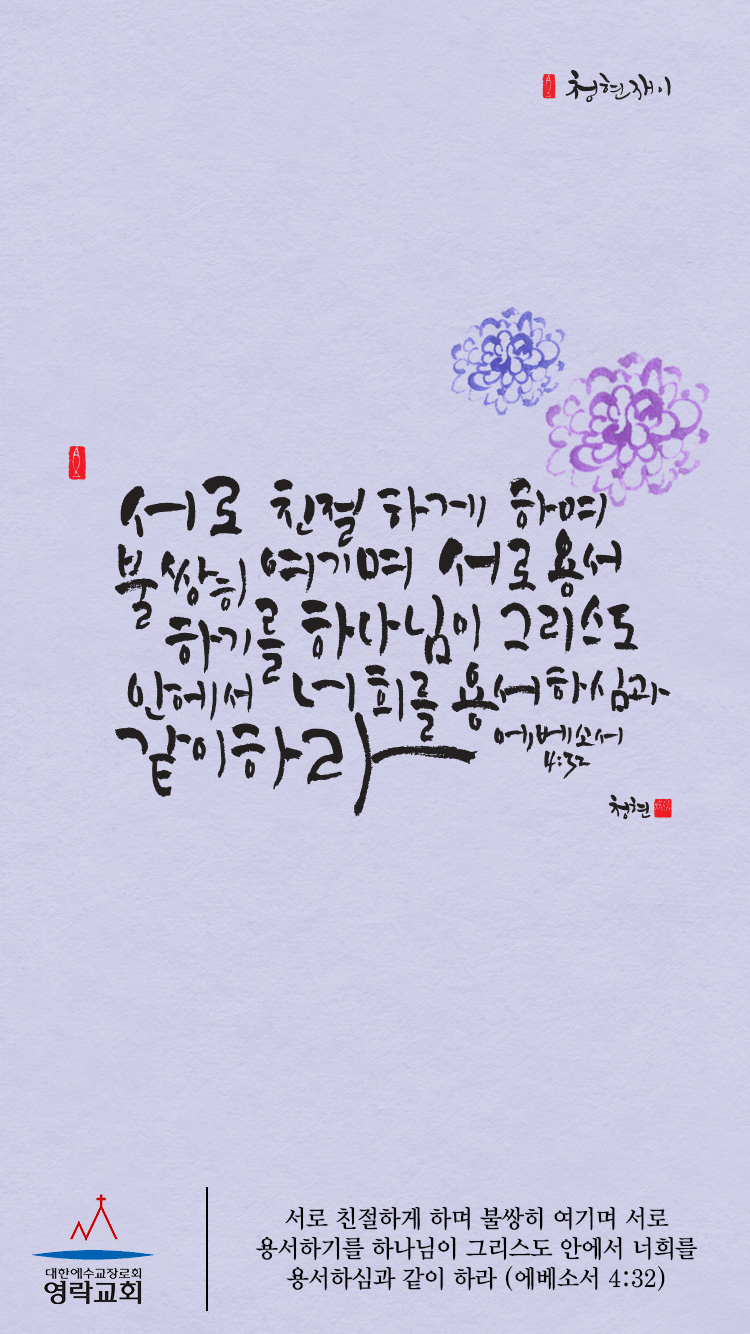 청현재이
서로 친절하게 하며
불쌍히 여기며 서로 용서
하기를 하나님이 그리스도
안에서 너희를 용서하심과
같이하라 에베소서
4:32
청현
대한예수교장로회
영락교회
서로 친절하게 하며 불쌍히 여기며 서로
용서하기를 하나님이 그리스도 안에서 너희를
용서하심과 같이 하라 (에베소서 4:32)